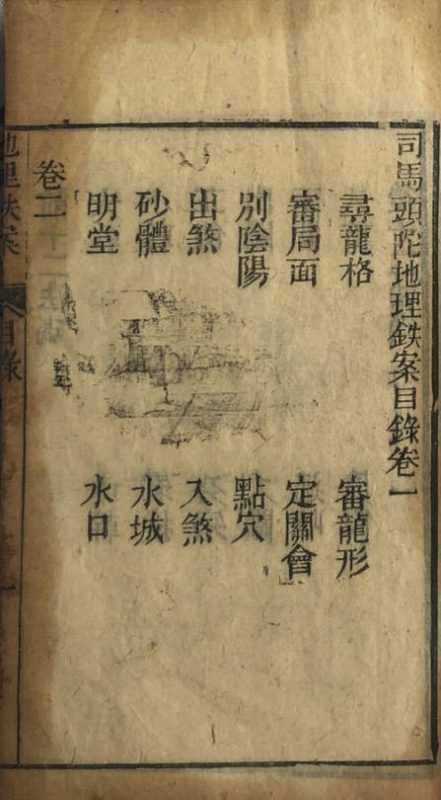 司馬頭陀地理鉄案目錄卷一
尋龍格 審龍形
審局面 定關會
別陰陽 點穴
出煞 入煞
砂體 水城
明堂 水口
卷二
地里鉄案 目錄 一